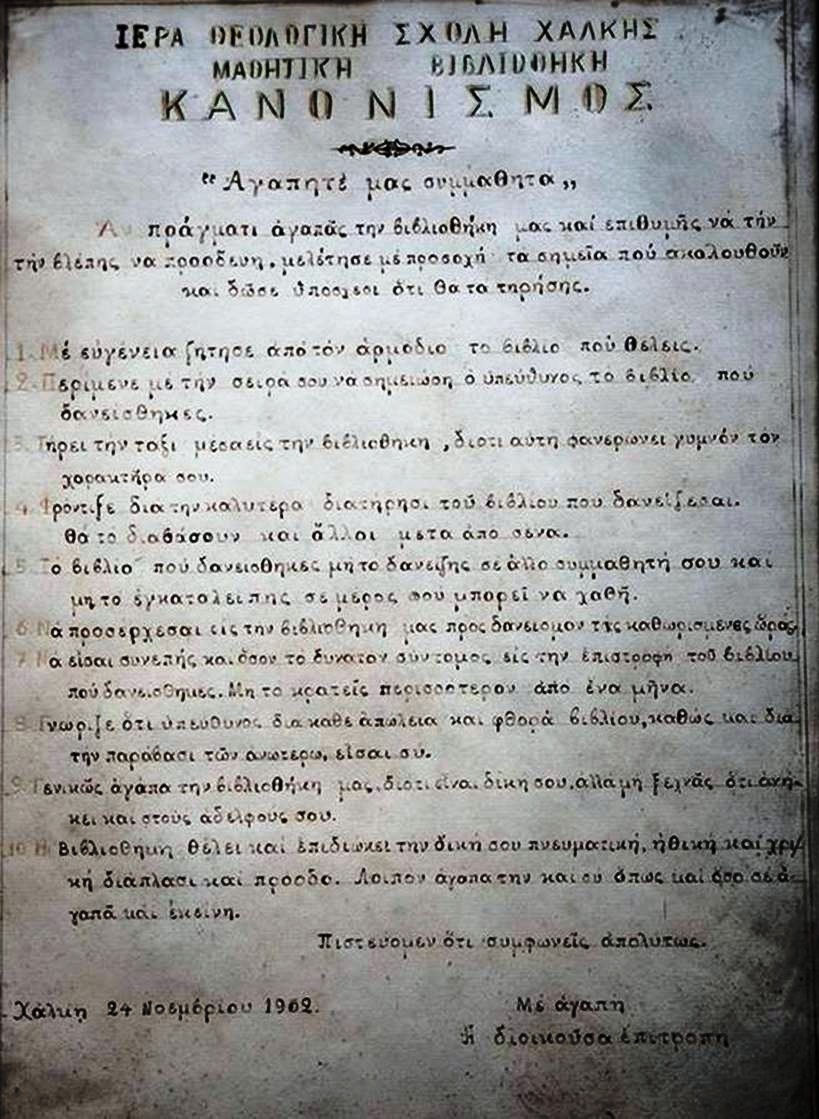 ΙΕΡΑ ΘΕΟΛΟΓΙΚΗ ΣΧΟΛΗ ΧΑΛΚΗΣ
ΜΑΘΗΤΙΚΗ ΒΙΒΛΙΟΘΗΚΗ
ΚΑΝΟΝΙΣΜΟΣ
"Αγαπητέ μας συμμαθητα„
Αν πράγματι ἀγαπᾶς την βιβλιοθήκη μας καί ἐπιθυμῆς νά τήν
τήν βλέπης να προοδευη, μελέτησε μέ προσοχή τα σημεῖα πού ακολουθοῦν
και δῶσε ὑποσχεσι ὅτι θα τα τηρήσης.
1. Μέ εὐγένεια ζητησε απο τόν ἁρμοδιο το βιβλιο ποὺ θέλεις.
2. Περίμενε με τήν σειρά σου νά σημειώση ὁ ὑπεύθυνος τό βιβλίο πού
δανείσθηκες.
3. Τήρει την ταξι μέσα εἰς την βιβλιοθήκη, διοτι αὐτή φανερωνει γυμνόν τόν
χαρακτῆρα σου.
4. Φροντιζε δια την καλυτερα διατήρησι τοῦ βιβλίου που δανείζεσαι.
Θά τό διαβάσουν και ἄλλοι μετα ἀπο σενα.
5. Τό βιβλιο πού δανεισθηκες μη το δανειζης σε ἀλλο συμμαθητή σου και
μη το ἐγκαταλειπης σε μερος που μπορεῖ να χαθῆ.
6. Νά προσερχεσαι εις την βιβλιοθηκη μας προς δανεισμον τάς καθωρισμενες ὥρας.
7. Νά εἶσαι συνεπής και ὅσον το δυνατον σύντομος εἰς την ἐπιστροφη τοῦ βιβλίου
πού δανεισθηκες. Μη το κρατεῖς περισσοτερον ἀπο ἑνα μῆνα.
8. Γνωριζε ὅτι ὑπευθυνος δια καθε ἀπωλεια και φθορά βιβλίου, καθώς και δια
τήν παράβασι τῶν ανωτερω, εἶσαι σύ.
9. Γενικῶς ἀγάπα την βιβλιοθήκη μας, διοτι εἶναι δίκη σου, ἀλλα μή ξεχνᾶς ὅτι ἀνή-
κει και στους ἀδελφους σου.
10. Η Βιβλιοθηκη θέλει και ἐπιδιώκει την δική σου πνευματική, ἠθική καί χρι/
κή διάπλασι και προοδο. Λοιπον ἀγαπα την και συ ὅπως και ὅσο σε ἀ-
γαπᾶ και ἐκείνη.
Πιστευομεν ὅτι συμφωνεῖς ἀπολυτως.
Χάλκη 24 Νοεμβρίου 1962.
Μέ ἀγαπη
Ἡ διοικοῦσα ἐπιτροπη